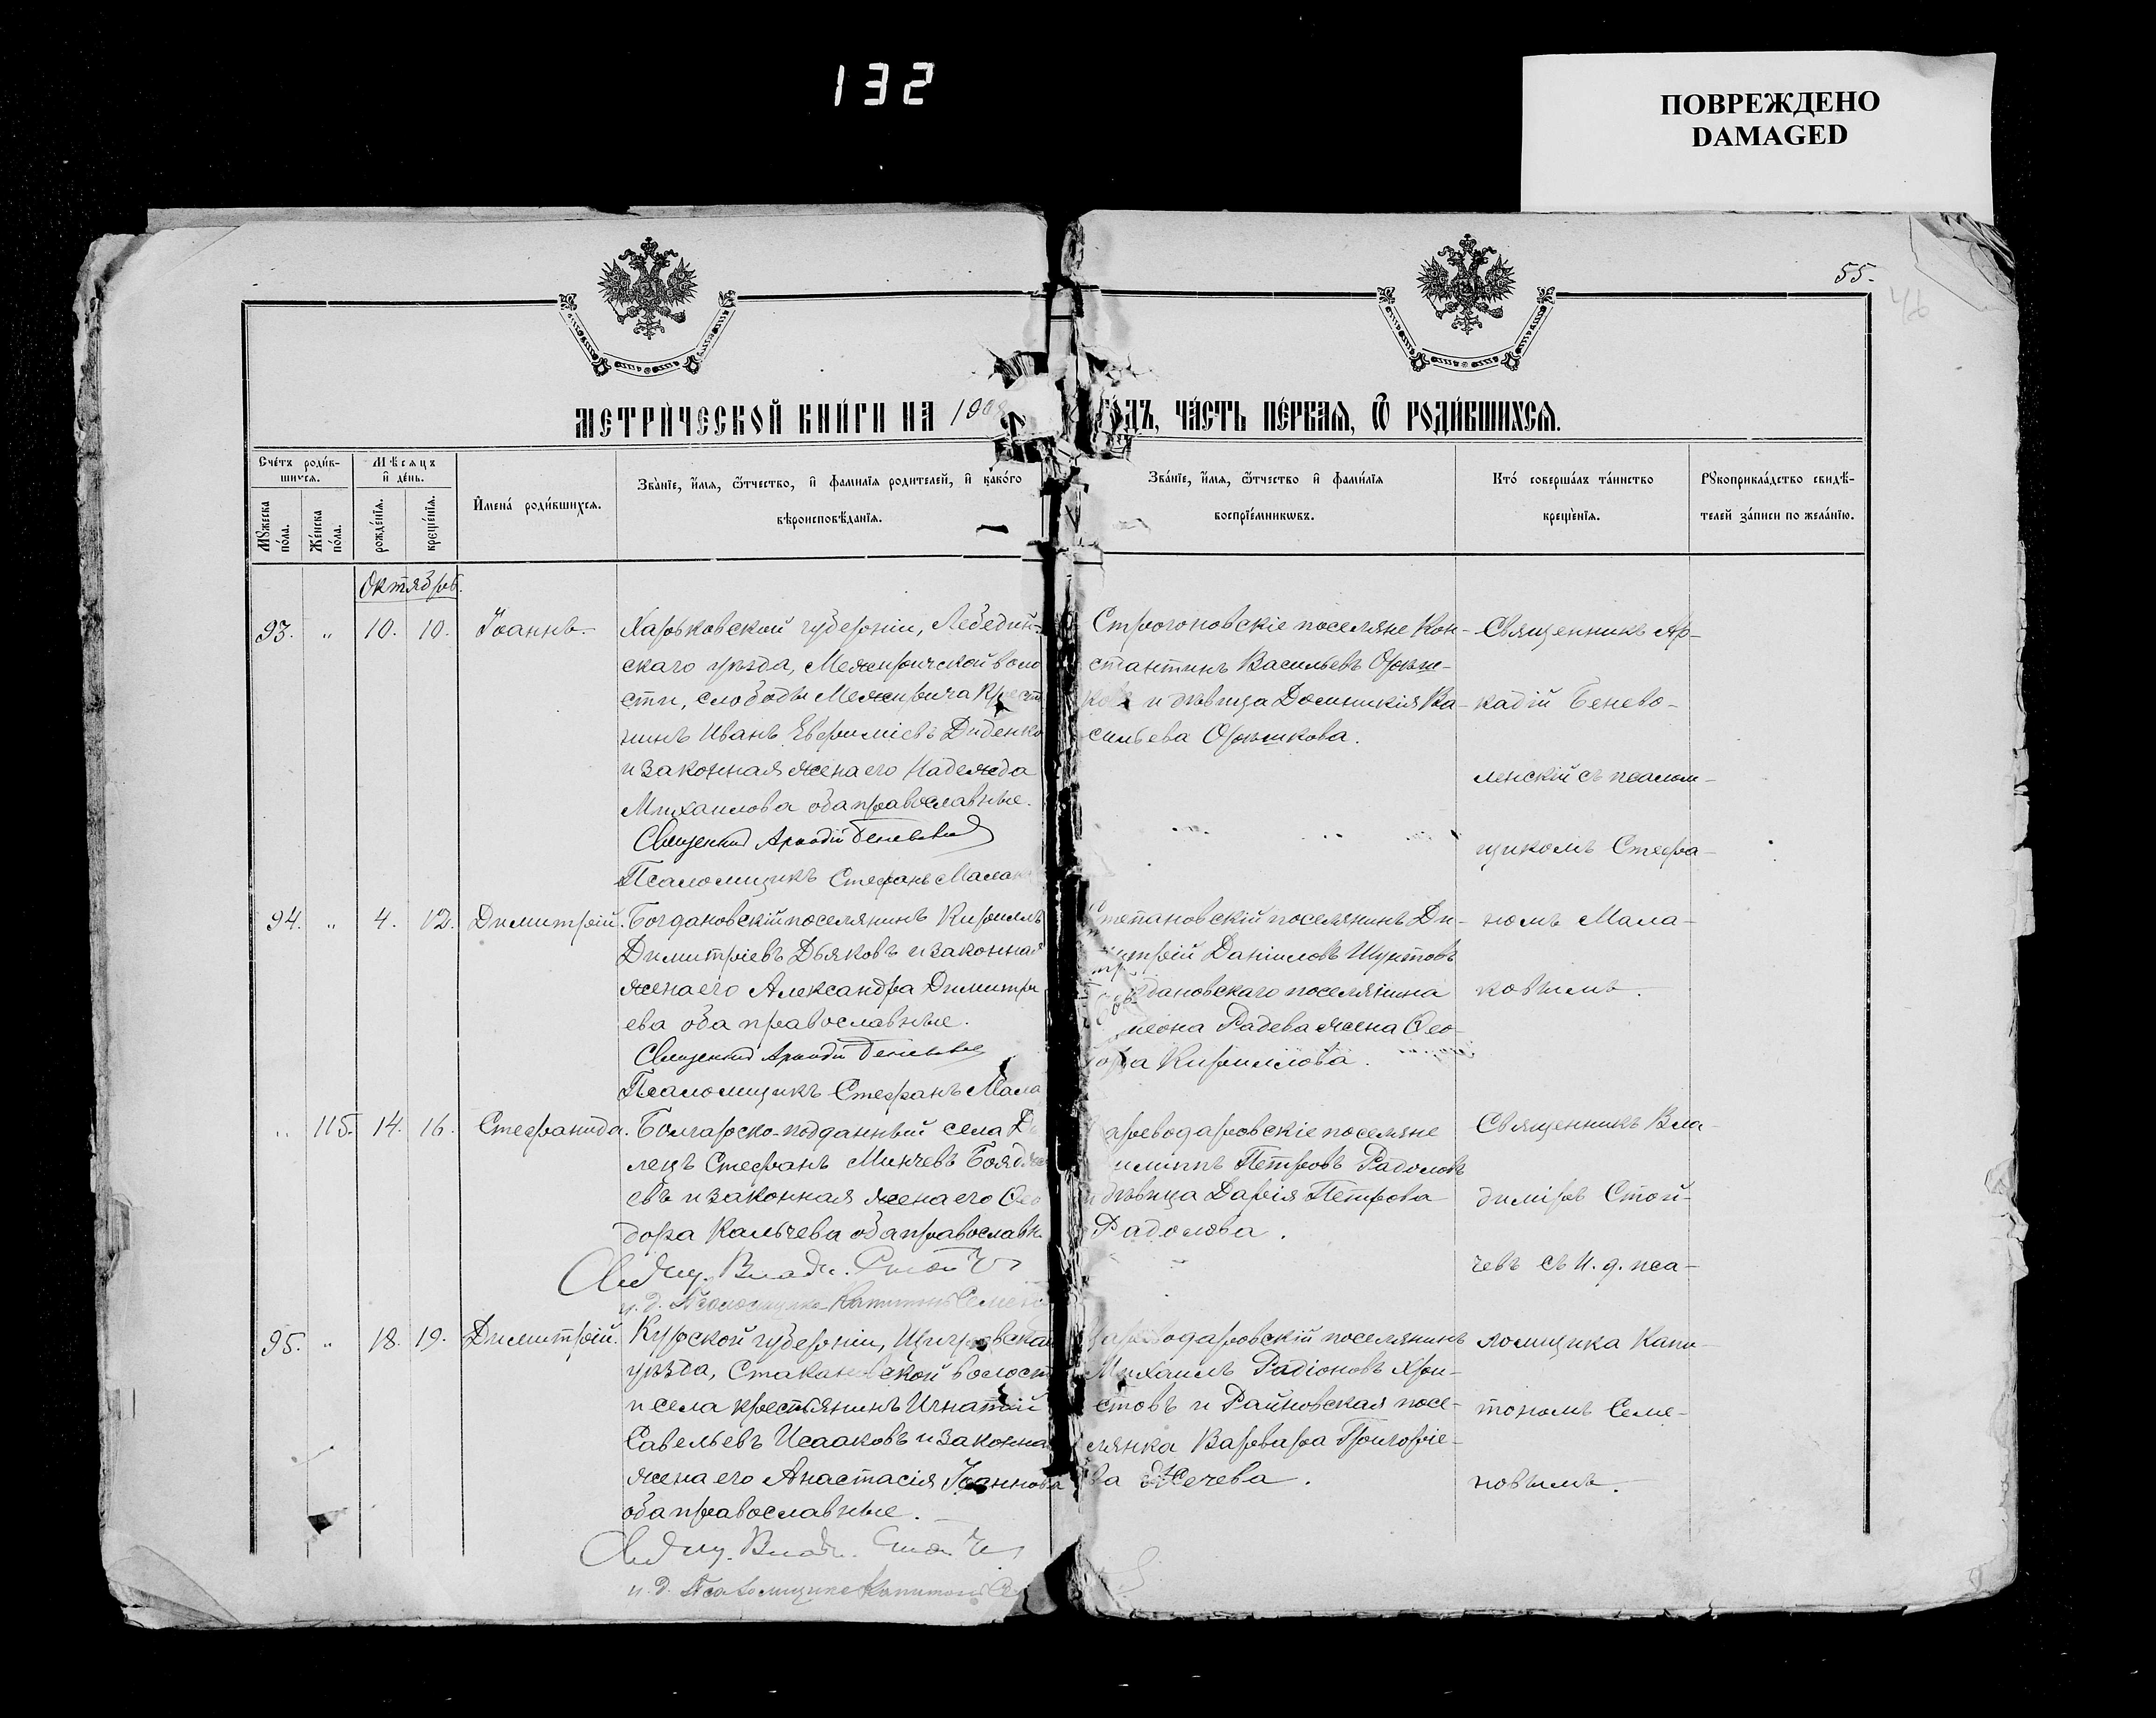 132
ПОВРЕЖДЕНО
DAMAGED
55.
46
МЕТРИ́ЧЕСКОЙ КНИ́ГИ НА 1908
ГО́ДЪ, ЧА́СТЬ ПЕ́РВАѦ, Ѿ РОДИ́ВШИХСѦ.
Сче́тъ роди́в-
шихсѧ.
Мѣ́сѧцъ
и҆ де́нь.
Мꙋ́жеска по́ла.
Же́нска по́ла.
рожде́нїѧ.
креще́нїѧ.
И҆мена̀ роди́вшихсѧ.
Зва́нїе, и҆́мѧ, ѻ҆́тчество, и҆ фами́лїѧ роди́телей, и҆ како́гѡ
вѣроисповѣ́данїѧ.
Зва́нїе, и҆́мѧ, ѻ҆́тчество и҆ фами́лїѧ
воспрїе́мникѡвъ.
Кто̀ соверша́лъ та́инство
креще́нїѧ.
Рꙋкоприкла́дство свидѣ́-
телей за́писи по жела́нїю.
Октябрь.
93. " 10. 10. Іоаннъ.
Харьковской губерніи, Лебедин-
скаго уѣзда, Межиричской воло
сти, слободы Межирича Крест
нинъ Иванъ Евфиміевъ Диденко
и законная жена его Надежда
Михаилова оба православные.
Священникъ Аркадій Беневол
Псаломщикъ Стефанъ Малак
Строгоновскіе поселяне Кон-
стантинъ Васильевъ Орѣш-
ковъ и дѣвица Домникія Ва-
сильева Орѣшкова.
Священникъ Ар-
кадій Бенево-
ленскій съ псалом-
щикомъ Стефа-
номъ Мала-
ковымъ.
94. " 4. 12. Димитрій.
Богдановскій поселянинъ Кириллъ
Димитріевъ Дьяковъ и законная
жена его Александра Димитри
ева оба православные.
Священникъ Аркадій Беневол
Псаломщикъ Стефанъ Мала
Степановскій поселянинъ Ди-
митрій Даніиловъ Шуштовъ
Богдановскаго поселянина
меона Радева жена Ѳео-
дора Кириллова.
" 115. 14. 16. Стефанида.
Болгарско-подданный села Д
лецъ Стефанъ Минчевъ Бояджи
евъ и законная жена его Ѳео
дора Кальчева оба православн.
Свящ. Влад. Стойчев
и. д. Псаломщика Капитонъ Семен
Цареводаровскіе поселяне
Филиппъ Петровъ Радоловъ
и дѣвица Дарія Петрова
Радолова.
Священникъ Вла-
диміръ Стой-
чевъ съ и. д. пса-
ломщика Капи-
тономъ Семе-
новымъ.
95. " 18. 19. Димитрій.
Курской губерніи, Щигровска
уѣзда, Стакановской волост
и села крестьянинъ Игнатій
Савельевъ Исааковъ и законна
жена его Анастасія Іоаннова
оба православные.
Свящ. Влад. Стойчев
и. д. Псаломщика Капитонъ Се
Цареводаровскій поселянинъ
Михаилъ Радіоновъ Хри-
стовъ и Райновская посе-
лянка Варвара Григорье-
ва Жечева.